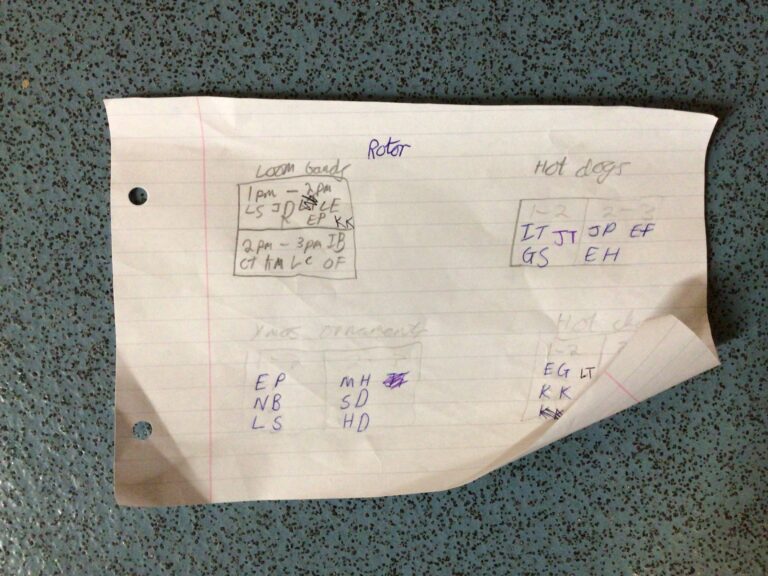 Rotor
Loom bands
1pm - 2pm
LS JD LE
K EP KK
2pm - 3pm IB
CT KM LC OF
Hot dogs
1-2 2-3
IT JT JP EF
GS EH
Xmas ornaments
EP MH
NB SD
LS HD
Hot
1-2
EG LT
KK